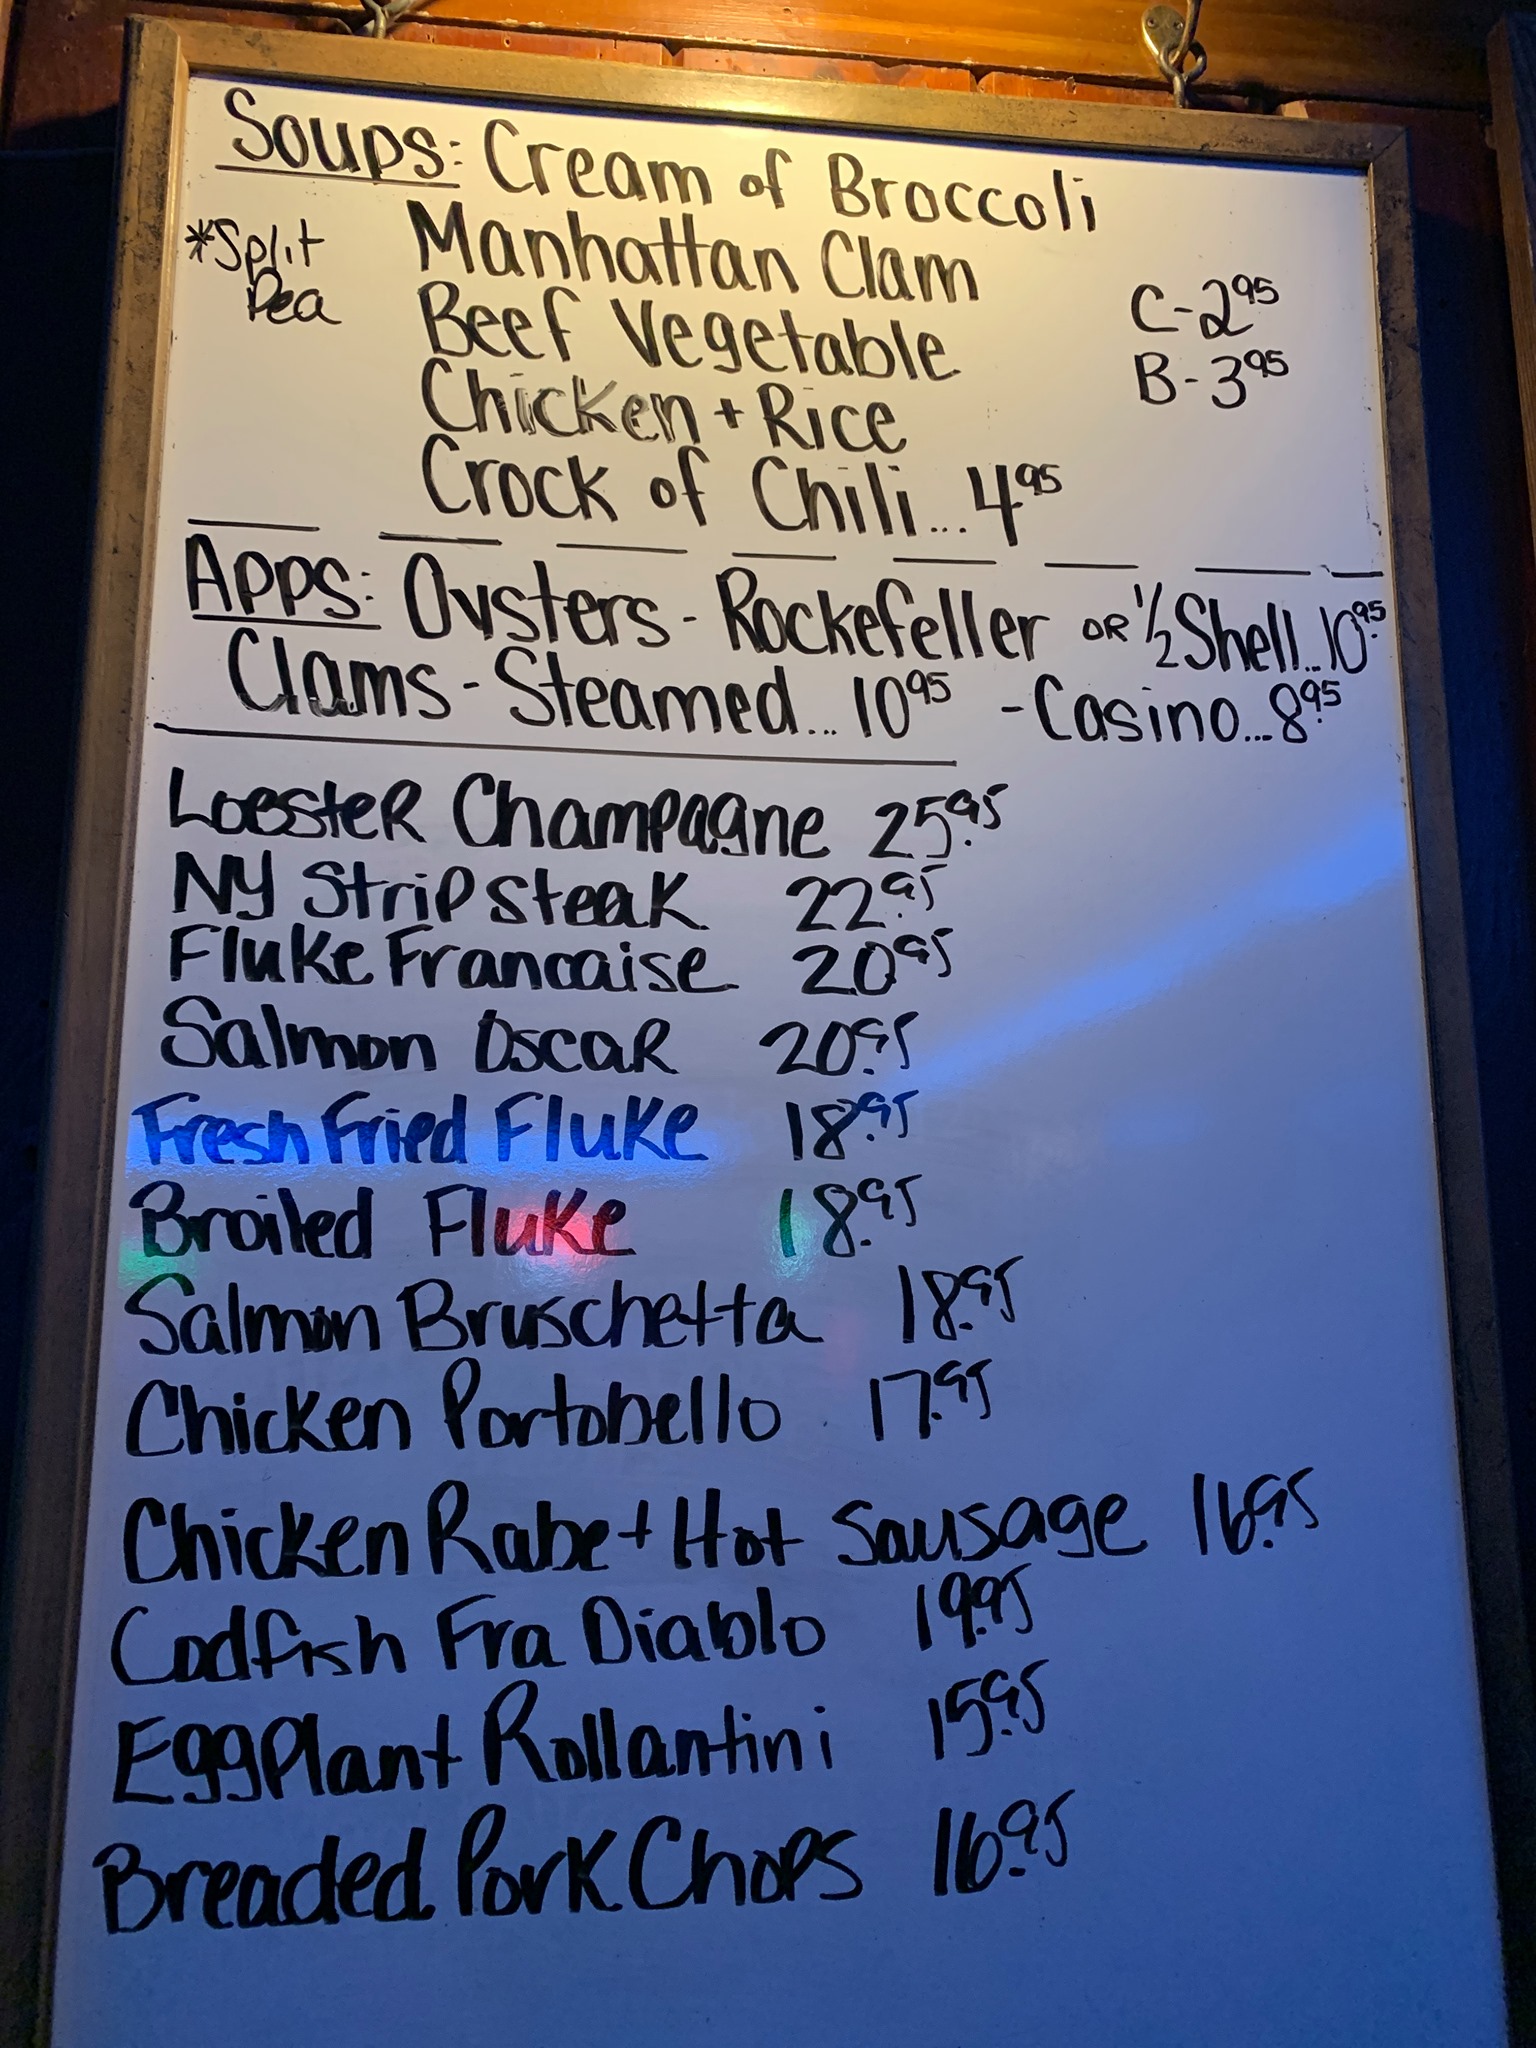 Soups: Cream of Broccoli
*Split Pea
Manhattan Clam
Beef Vegetable
C-2.95
B-3.95
Chicken + Rice
Crock of Chili...4.95
Apps: Oysters - Rockefeller OR 1/2 Shell...10.95
Clams - Steamed...10.95 - Casino...8.95
Lobster Champagne 25.95
NY Strip Steak 22.95
Fluke Francaise 20.95
Salmon Oscar 20.95
Fresh Fried Fluke 18.95
Broiled Fluke 18.95
Salmon Bruschetta 18.95
Chicken Portobello 17.95
Chicken Rabe + Hot Sausage 16.95
Codfish Fra Diablo 19.95
Eggplant Rollantini 15.95
Breaded Pork Chops 16.95